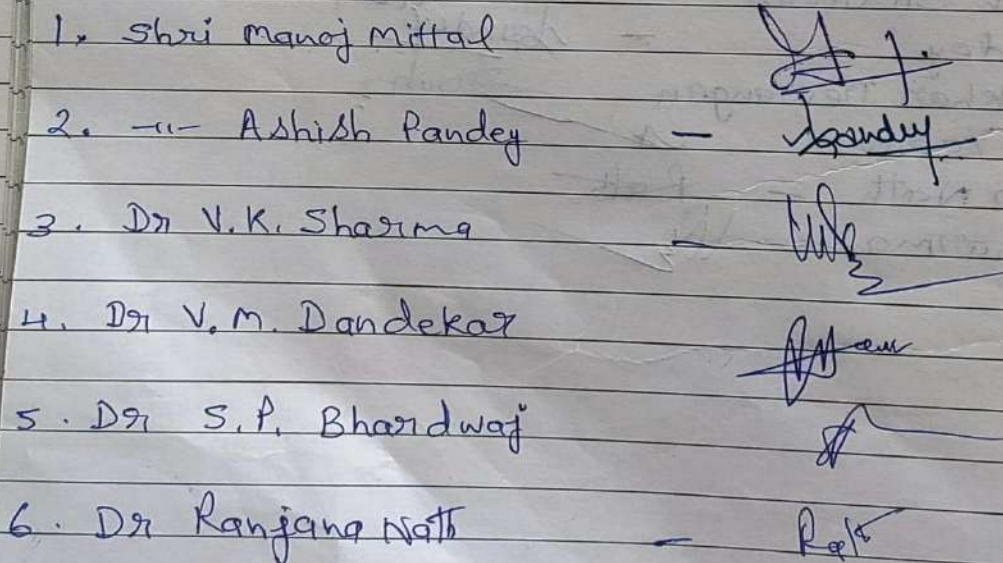 1. Shri Manoj Mittal
2. -11- Ashish Pandey - Apandey
3. Dr V.K. Sharma -
4. Dr V.M. Dandekar
5. Dr S.P. Bhardwaj
6. Dr Ranjana Nath -